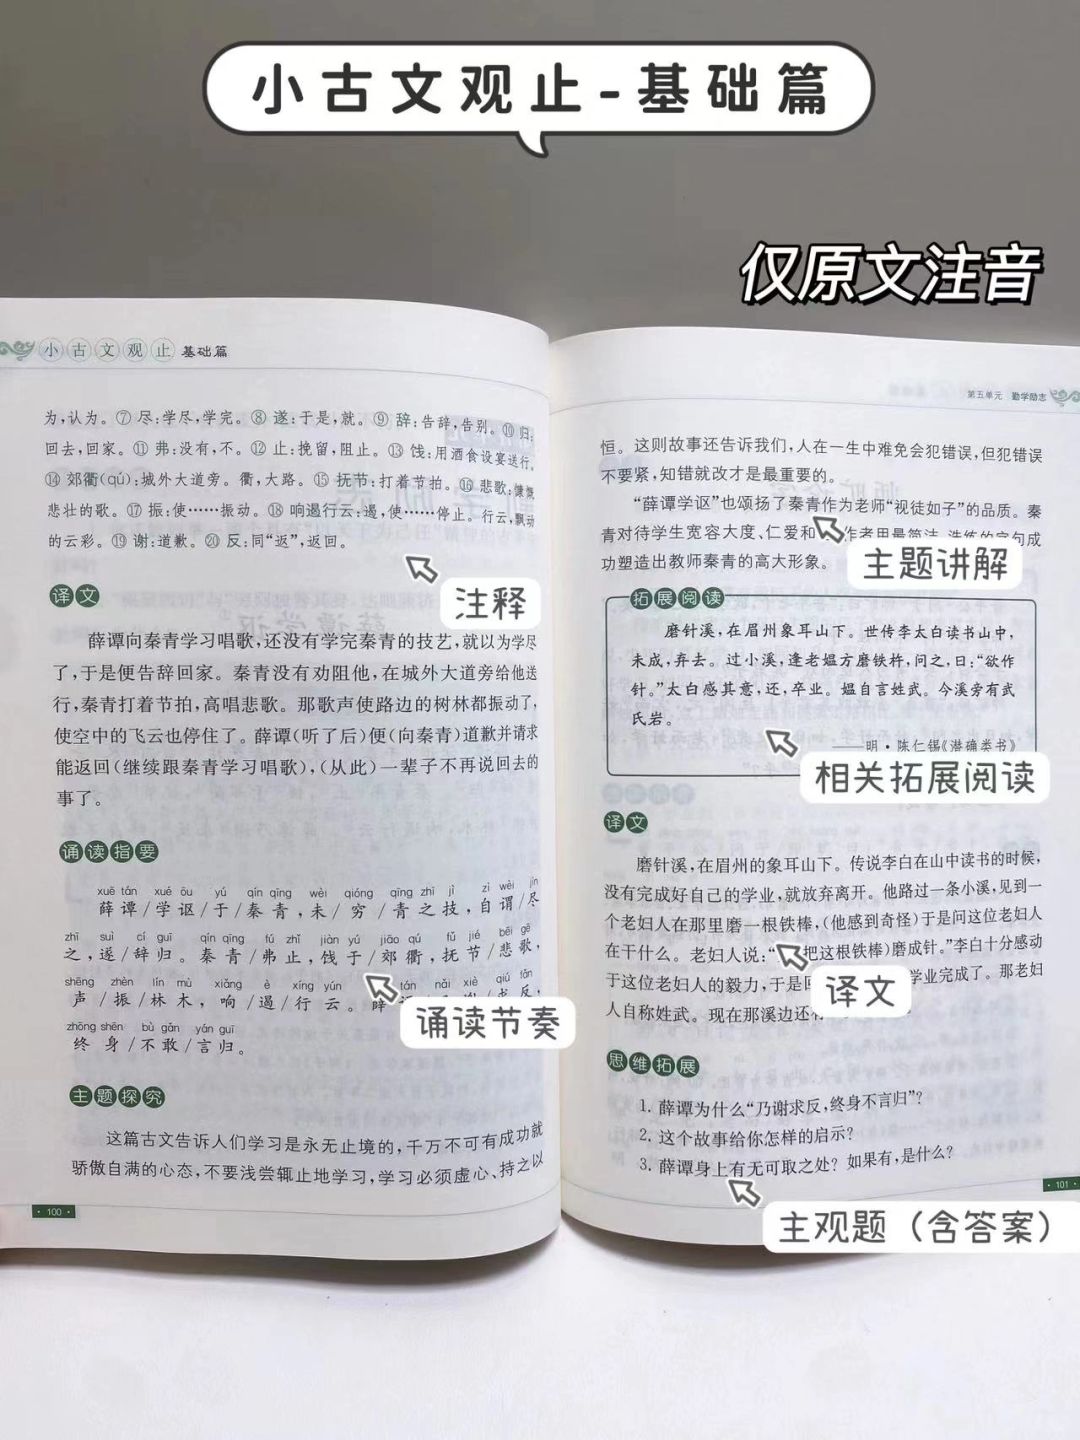 小古文观止-基础篇
仅原文注音
小古文观止 基础篇
为,认为。⑦ 尽:学尽,学完。⑧ 遂:于是,就。⑨ 辞:告辞,告别。⑩ 归:
回去,回家。⑪ 弗:没有,不。⑫ 止:挽留,阻止。⑬ 饯:用酒食设宴送行。
⑭ 郊衢(qú):城外大道旁。衢,大路。⑮ 抚节:打着节拍。⑯ 悲歌:慷慨
悲壮的歌。⑰ 振:使……振动。⑱ 响遏行云:遏,使……停止。行云,飘动
的云彩。⑲ 谢:道歉。⑳ 反:同“返”,返回。
注释
译文
薛谭向秦青学习唱歌,还没有学完秦青的技艺,就以为学尽
了,于是便告辞回家。秦青没有劝阻他,在城外大道旁给他送
行,秦青打着节拍,高唱悲歌。那歌声使路边的树林都振动了,
使空中的飞云也停住了。薛谭(听了后)便(向秦青)道歉并请求
能返回(继续跟秦青学习唱歌),(从此)一辈子不再说回去的
事了。
诵读指要
xuē tán xué ōu yú qín qīng wèi qióng qīng zhī jì zì wèi jìn
薛谭/学讴/于/秦青,未/穷/青之技,自谓/尽
zhī suì cí guī qín qīng fú zhǐ jiàn yú jiāo qú fǔ jié bēi gē
之,遂/辞归。秦青/弗止,饯于/郊衢,抚节/悲歌,
shēng zhèn lín mù xiǎng è xíng yún nǎi xiè qiú fǎn
声/振/林木,响/遏/行云。薛 求反,
zhōng shēn bù gǎn yán guī
终身/不敢/言归。
诵读节奏
主题探究
这篇古文告诉人们学习是永无止境的,千万不可有成功就
骄傲自满的心态,不要浅尝辄止地学习,学习必须虚心、持之以
· 100 ·
第五单元 勤学励志
恒。这则故事还告诉我们,人在一生中难免会犯错误,但犯错误
不要紧,知错就改才是最重要的。
“薛谭学讴”也颂扬了秦青作为老师“视徒如子”的品质。秦
青对待学生宽容大度、仁爱和 作者用最简洁、洗练的字句成
功塑造出教师秦青的高大形象。
主题讲解
拓展阅读
磨针溪,在眉州象耳山下。世传李太白读书山中,
未成,弃去。过小溪,逢老媪方磨铁杵,问之,曰:“欲作
针。”太白感其意,还,卒业。媪自言姓武。今溪旁有武
氏岩。
——明·陈仁锡《潜确类书》
相关拓展阅读
译文
磨针溪,在眉州的象耳山下。传说李白在山中读书的时候,
没有完成好自己的学业,就放弃离开。他路过一条小溪,见到一
个老妇人在那里磨一根铁棒,(他感到奇怪)于是问这位老妇人
在干什么。老妇人说:“ 把这根铁棒)磨成针。”李白十分感动
于这位老妇人的毅力,于是回 学业完成了。那老妇
人自称姓武。现在那溪边还有
译文
思维拓展
1. 薛谭为什么“乃谢求反,终身不言归”?
2. 这个故事给你怎样的启示?
3. 薛谭身上有无可取之处?如果有,是什么?
· 101 ·
主观题(含答案)